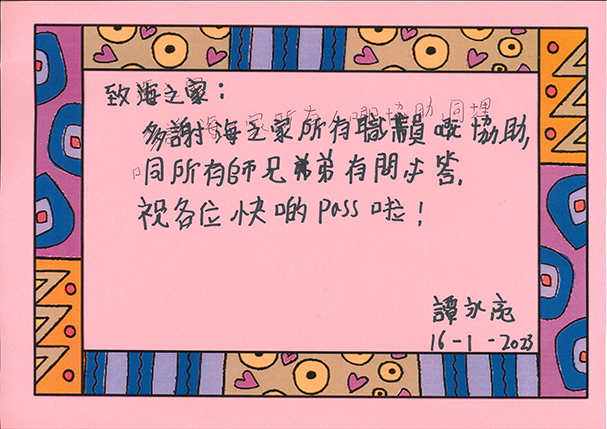 致海之家：
多謝海之家所有職員嘅協助，
同所有師兄弟弟有問必答，
祝各位快啲pass啦！
譚永亮
16-1-2023